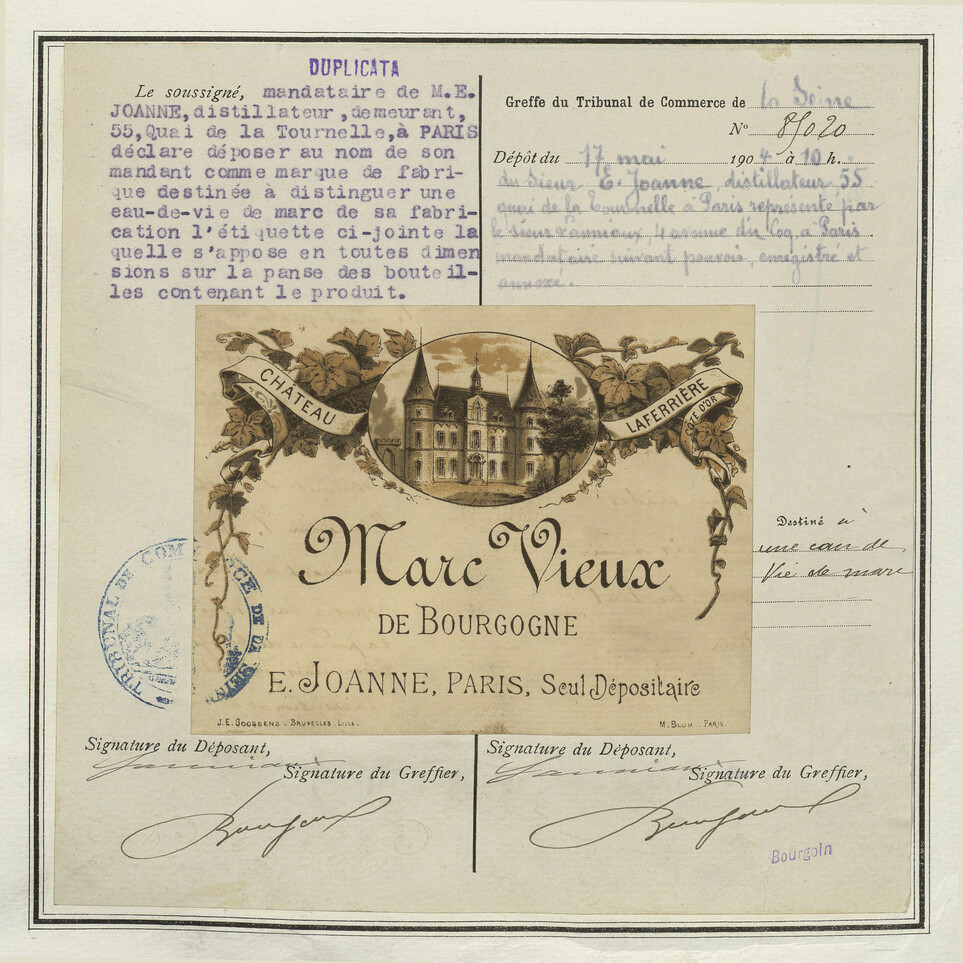 DUPLICATA
Le soussigné, mandataire de M.E.
JOANNE,distillateur,demeurant,
55,Quai de la Tournelle,à PARIS
déclare déposer au nom de son
mandant comme marque de fabri-
que destinée à distinguer une
eau-de-vie de marc de sa fabri-
cation l'étiquette ci-jointe la
quelle s'appose en toutes dimen
sions sur la panse des bouteil-
les contenant le produit.
Greffe du Tribunal de Commerce de la Seine
N° 85020
Dépôt du 17 mai 1904 à 10 h.
du Sieur E. Joanne, distillateur 55
quai de la Tournelle à Paris représenté par
le sieur 4 avenue du Coq, à Paris
mandataire suivant pouvoir, enregistré et
annexe.
CHATEAU
LAFERRIÈRE
CÔTE D'OR
Marc Vieux
DE BOURGOGNE
E. JOANNE, PARIS, Seul Dépositaire
J.E. GOOSSENS . BRUXELLES . LILLE .
M. BLUM . PARIS.
Destiné à
une eau de
vie de marc
TRIBUNAL DE COMMERCE DE LA SEINE
Signature du Déposant,
Signature du Greffier,
Signature du Déposant,
Signature du Greffier,
Bourgoin